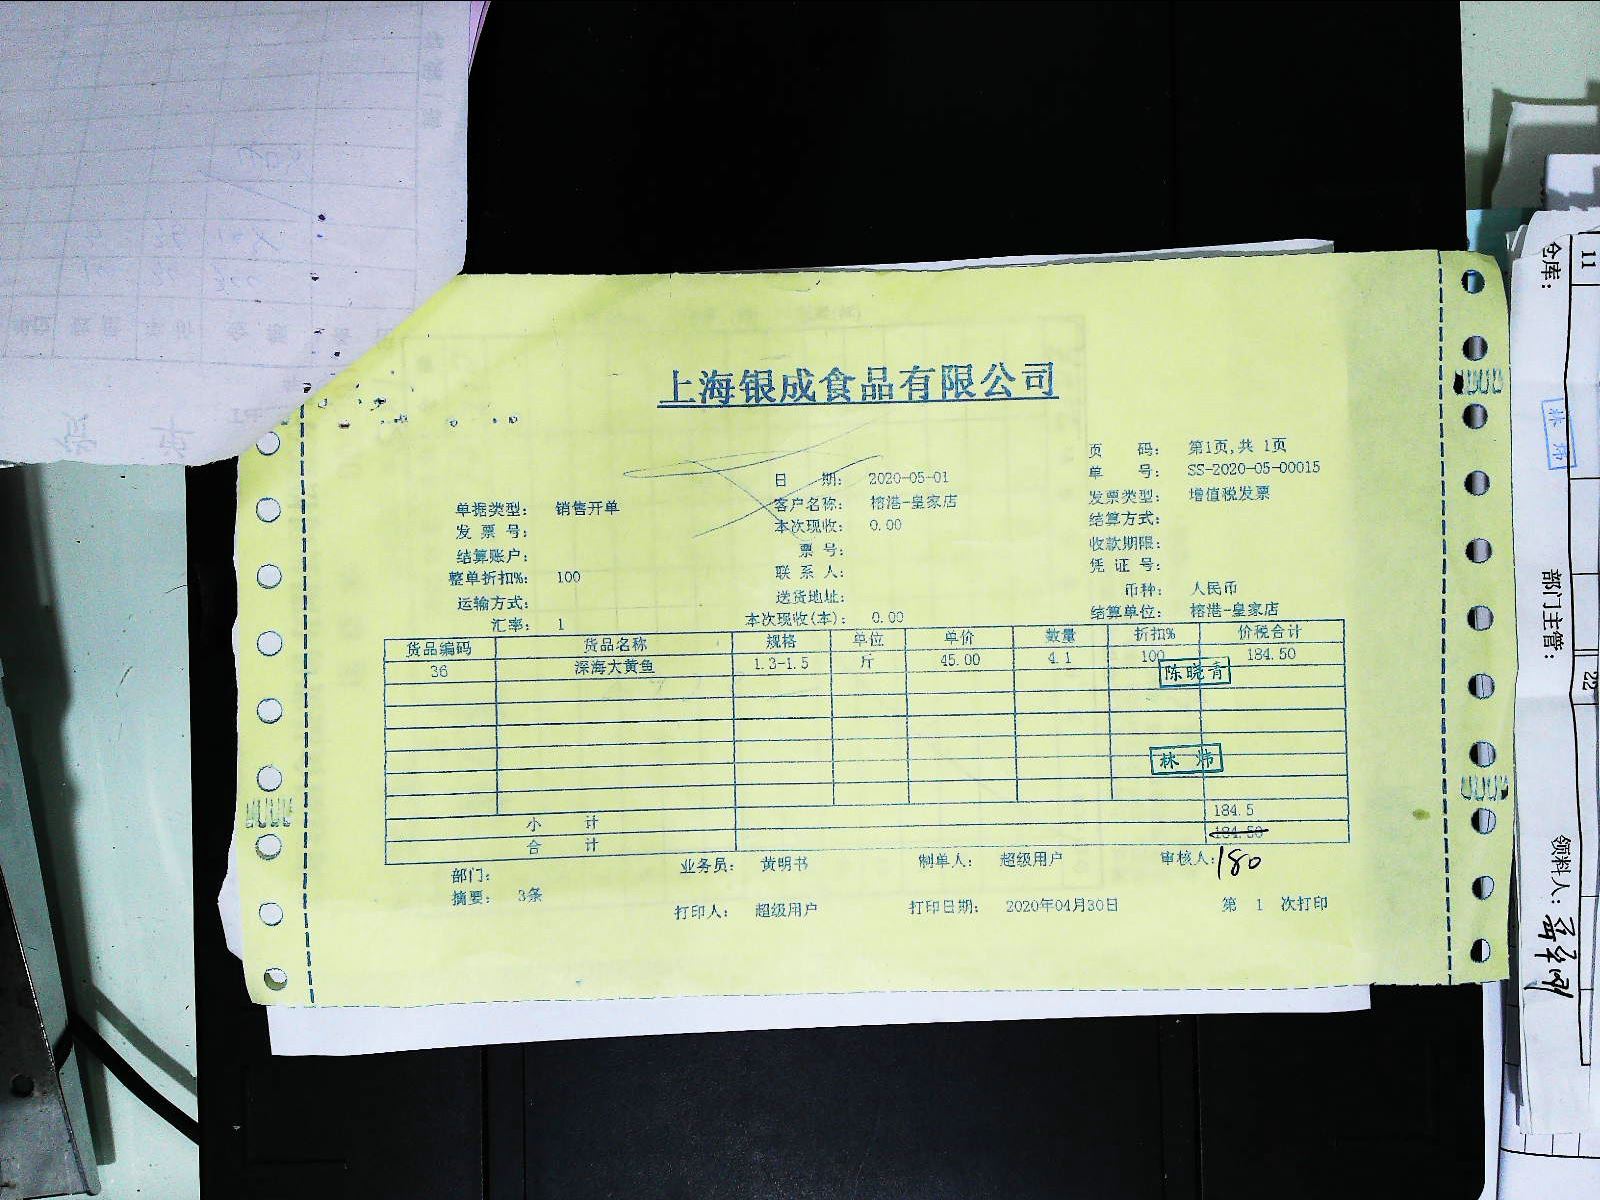 上海银成食品有限公司
页 码: 第1页,共 1页
日 期: 2020-05-01 单 号: SS-2020-05-00015
单据类型: 销售开单 客户名称: 榕港-皇家店 发票类型: 增值税发票
发 票 号: 本次现收: 0.00 结算方式:
结算账户: 票 号: 收款期限:
整单折扣%: 100 联 系 人: 凭 证 号:
运输方式: 送货地址: 币种: 人民币
汇率: 1 本次现收(本): 0.00 结算单位: 榕港-皇家店
货品编码 货品名称 规格 单位 单价 数量 折扣% 价税合计
36 深海大黄鱼 1.3-1.5 斤 45.00 4.1 100 184.50
陈晓青
林 炜
小 计 184.5
合 计 184.50
部门: 业务员: 黄明书 制单人: 超级用户 审核人: 180
摘要: 3条
打印人: 超级用户 打印日期: 2020年04月30日 第 1 次打印
仓库:
11
部门主管:
22
领料人: